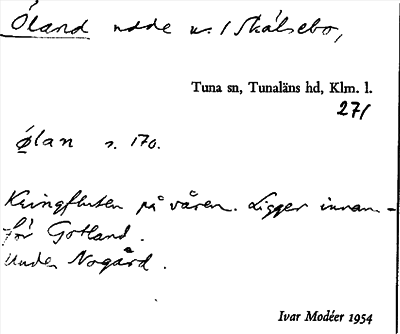 Öland udde u. / Skälsebo,
Tuna sn, Tunaläns hd, Klm. l.
271
Ølan s. 170.
Kringfluten på våren. Ligger innan-
för Gotland.
Under Nogård.
Ivar Modéer 1954